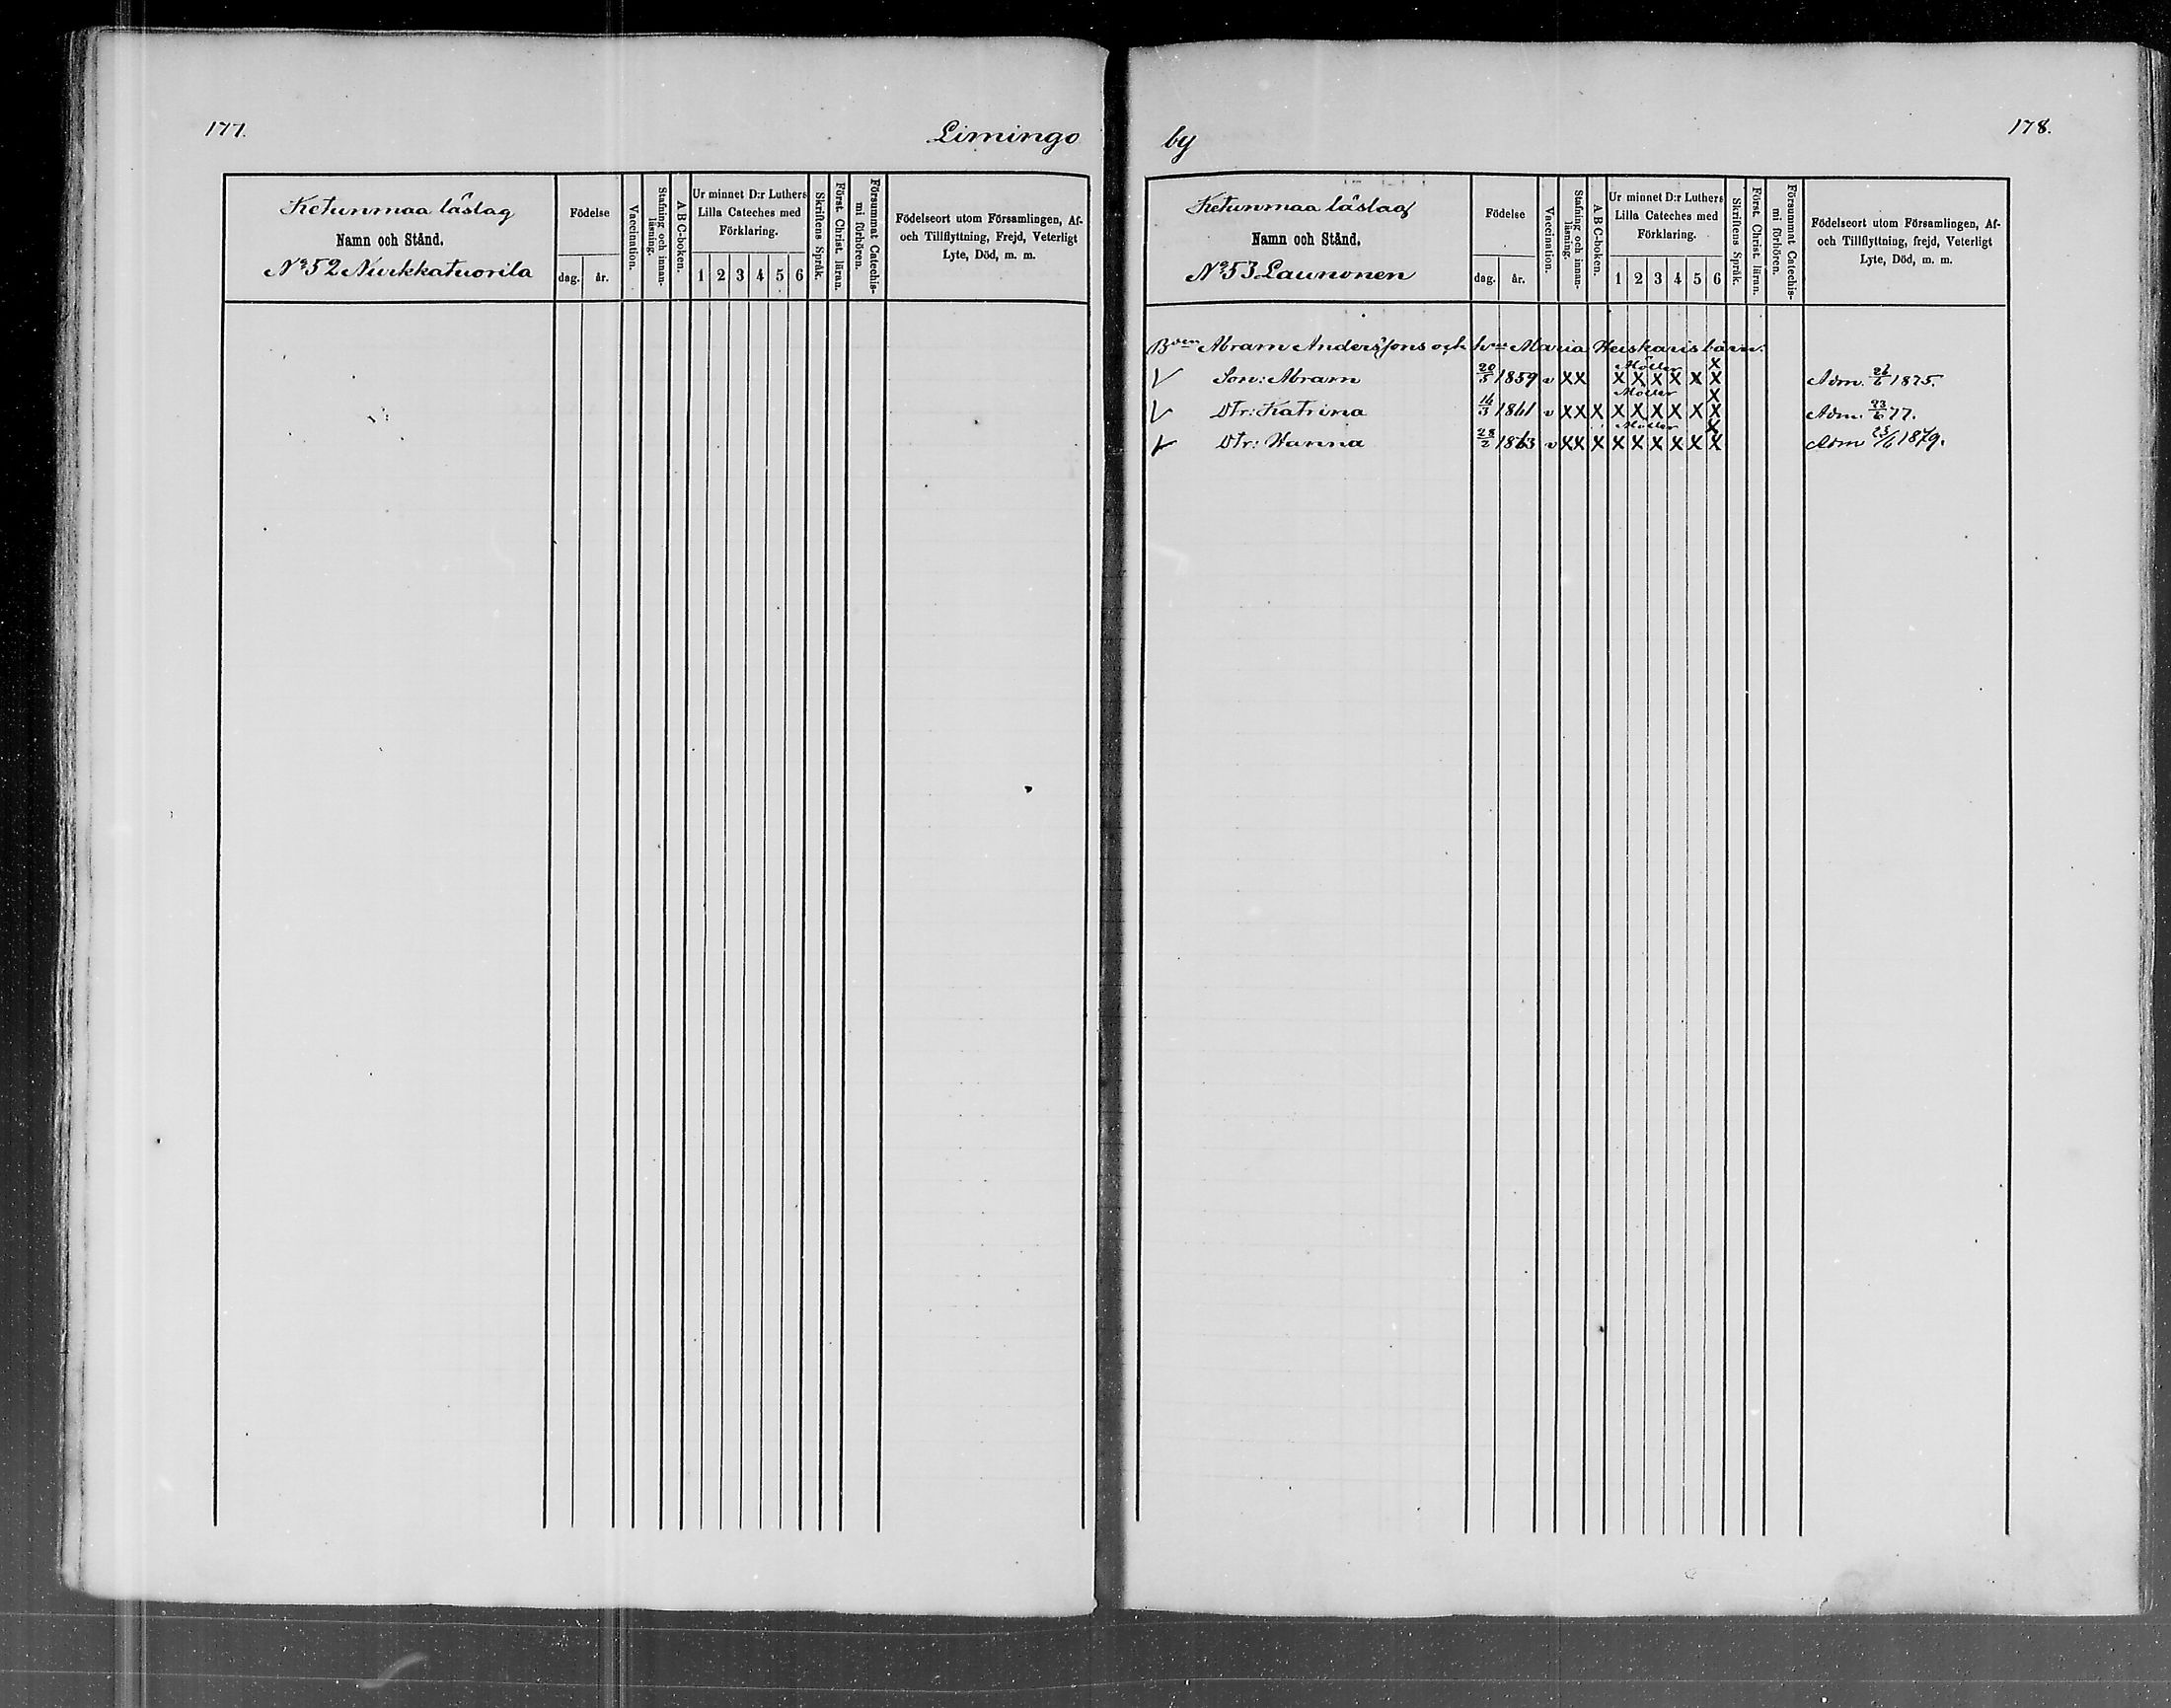 177.
Limingo
Ketunmaa läslag
Namn och Stånd.
No 52 Nurkkatuorila
Födelse
dag. år.
Vaccination.
Stafning och innan-
läsning.
A B C-boken.
Ur minnet D:r Luthers
Lilla Cateches med
Förklaring.
1 2 3 4 5 6
Skriftens Språk.
Först. Christ. läran.
Försummat Catechis-
mi förhören.
Födelseort utom Församlingen, Af-
och Tillflyttning, Frejd, Veterligt
Lyte, Död, m. m.
by
178.
Ketunmaa läslag
Namn och Stånd.
No 53 Launonen
Födelse
dag. år.
Vaccination.
Stafning och innan-
läsning.
A B C-boken.
Ur minnet D:r Luthers
Lilla Cateches med
Förklaring.
1 2 3 4 5 6
Skriftens Språk.
Först. Christ. läran.
Försummat Catechis-
mi förhören.
Födelseort utom Församlingen, Af-
och Tillflyttning, frejd, Veterligt
Lyte, Död, m. m.
Abram Anderssons och Maria Heiskaris barn:
Möller X
V Son: Abram 20/5 1859 v X X X X X X X X Adm. 1875.
Möller X
V Dtr: Katrina 16/3 1861 v X X X X X X X X X Adm. 23/6 77.
Möller X
V Dtr: Hanna 28/2 1863 v X X X X X X X X X Adm 1879.